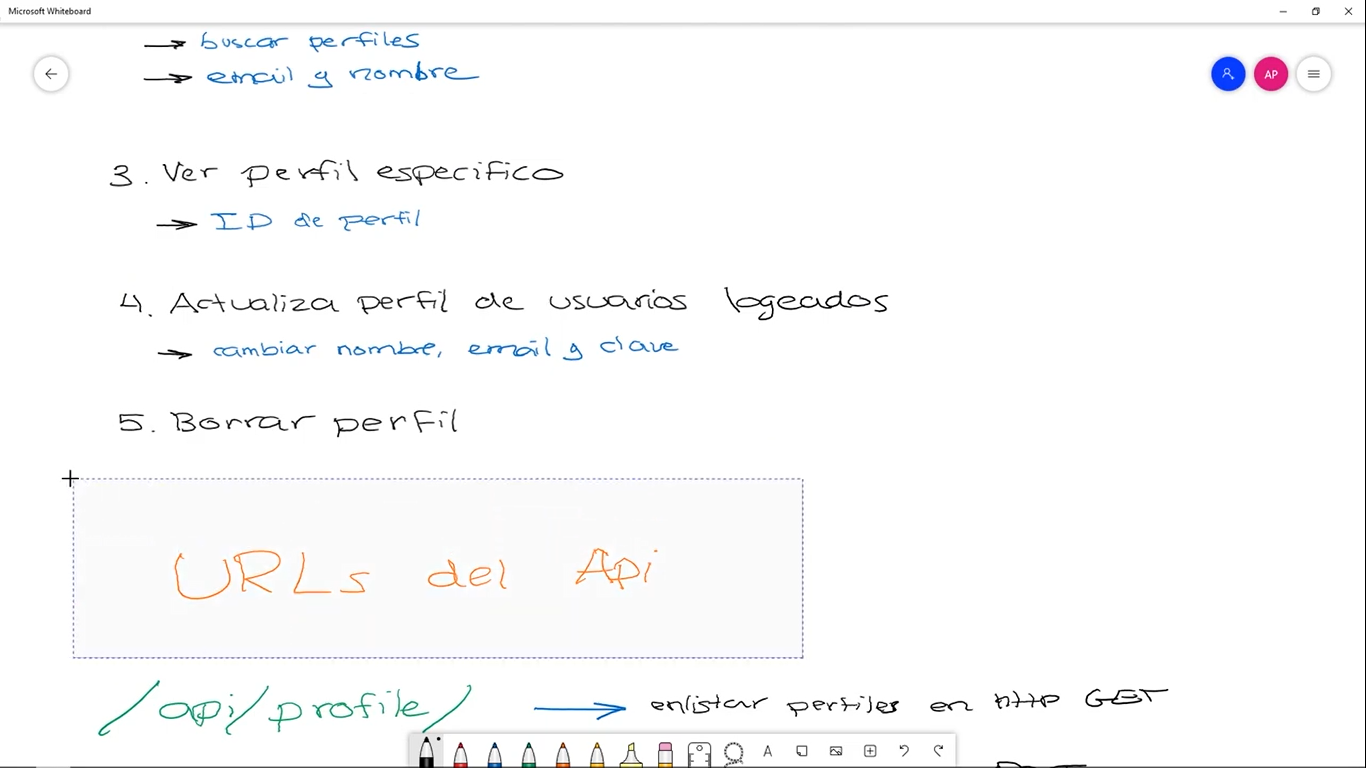 Microsoft Whiteboard
→ buscar perfiles
→ email y nombre
AP
3. Ver perfil especifico
→ ID de perfil
4. Actualiza perfil de usuarios logeados
→ cambiar nombre, email y clave
5. Borrar perfil
URLs del Api
/api/profile/ → enlistar perfiles en http GET
A